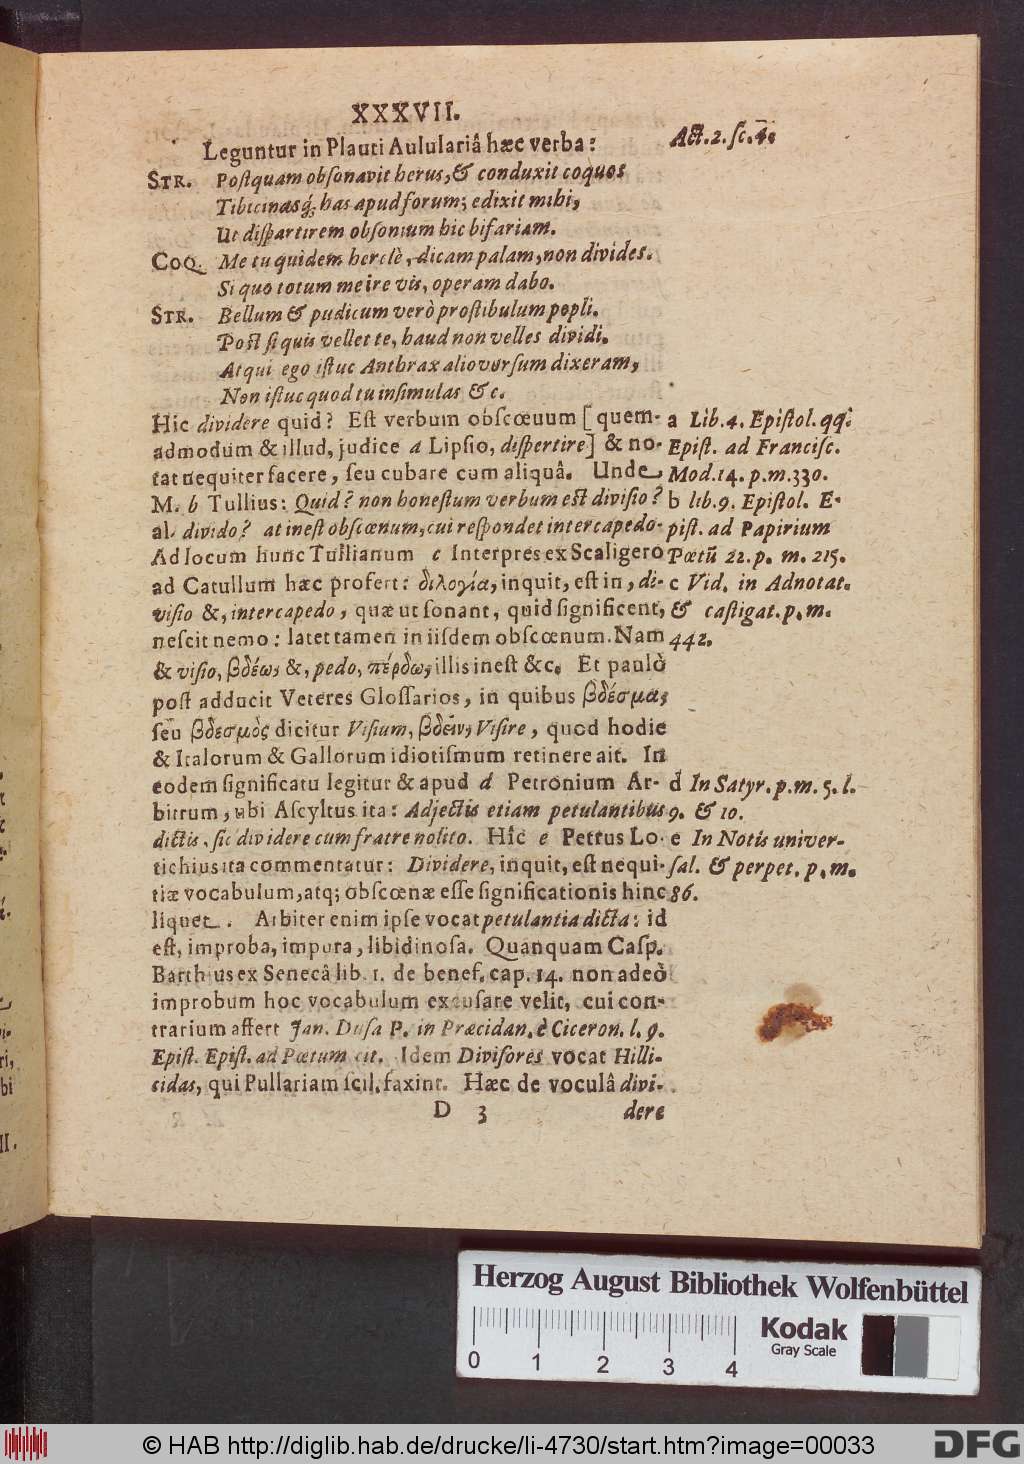 XXXVII.
Leguntur in Plauti Aululariâ hæc verba:
Act. 2. ſc. 4.
STR. Poſtquam obſonavit herus, & conduxit coquos
Tibicinasq́; has apud forum; edixit mihi,
Ut diſpartirem obſonium hic bifariam.
COQ. Me tu quidem herclè, dicam palam, non divides.
Si quo totum me ire vis, operam dabo.
STR. Bellum & pudicum verò proſtibulum popli.
Poſt ſi quis vellet te, haud non velles dividi.
Atqui ego iſtuc Anthrax aliovorſum dixeram,
Non iſtuc quod tu inſimulas &c.
Hic dividere quid? Eſt verbum obſcœuum [quem-
admodum & illud, judice a Lipſio, diſpertire] & no-
tat nequiter facere, ſeu cubare cum aliquâ. Unde
M. b Tullius: Quid? non honeſtum verbum eſt diviſio?
al. divido? at ineſt obſcœnum, cui reſpondet intercapedo.
Ad locum hunc Tullianum c Interpres ex Scaligero
ad Catullum hæc profert: διλογία, inquit, eſt in, di-
viſio &, intercapedo, quæ ut ſonant, quid ſignificent,
neſcit nemo: latet tamen in iisdem obſcœnum. Nam
& viſio, βδέω, &, pedo, πέρδω, illis ineſt &c. Et paulò
poſt adducit Veteres Gloſſarios, in quibus βδέσμα,
ſeu βδεσμὸς dicitur Viſium, βδεῖν, Viſire, quod hodie
& Italorum & Gallorum idiotiſmum retinere ait. In
eodem ſignificatu legitur & apud d Petronium Ar-
bitrum, ubi Aſcyltus ita: Adjectis etiam petulantibus
dictis, ſic dividere cum fratre nolito. Hîc e Petrus Lo-
tichius ita commentatur: Dividere, inquit, eſt nequi-
tiæ vocabulum, atq; obſcœnæ eſſe ſignificationis hinc
liquet. Arbiter enim ipſe vocat petulantia dicta: id
eſt, improba, impura, libidinoſa. Quanquam Caſp.
Barthius ex Senecâ lib. 1. de benef. cap. 14. non adeò
improbum hoc vocabulum excuſare velit, cui con-
trarium affert Jan. Duſa P. in Præcidan. è Ciceron. l. 9.
Epiſt. Epiſt. ad Pœtum cit. Idem Diviſores vocat Hilli-
cidas, qui Pullariam ſcil. faxint. Hæc de voculâ divi-
D 3 dere
a Lib. 4. Epiſtol. qq̃.
Epiſt. ad Franciſc.
Mod. 14. p. m. 330.
b lib. 9. Epiſtol. E-
piſt. ad Papirium
Pœtũ 22. p. m. 215.
c Vid. in Adnotat.
& caſtigat. p. m.
442.
d In Satyr. p. m. 5. l.
9. & 10.
e In Notis univer-
ſal. & perpet. p. m.
86.
Herzog August Bibliothek Wolfenbüttel
0 1 2 3 4
Kodak
Gray Scale
© HAB http://diglib.hab.de/drucke/li-4730/start.htm?image=00033
DFG